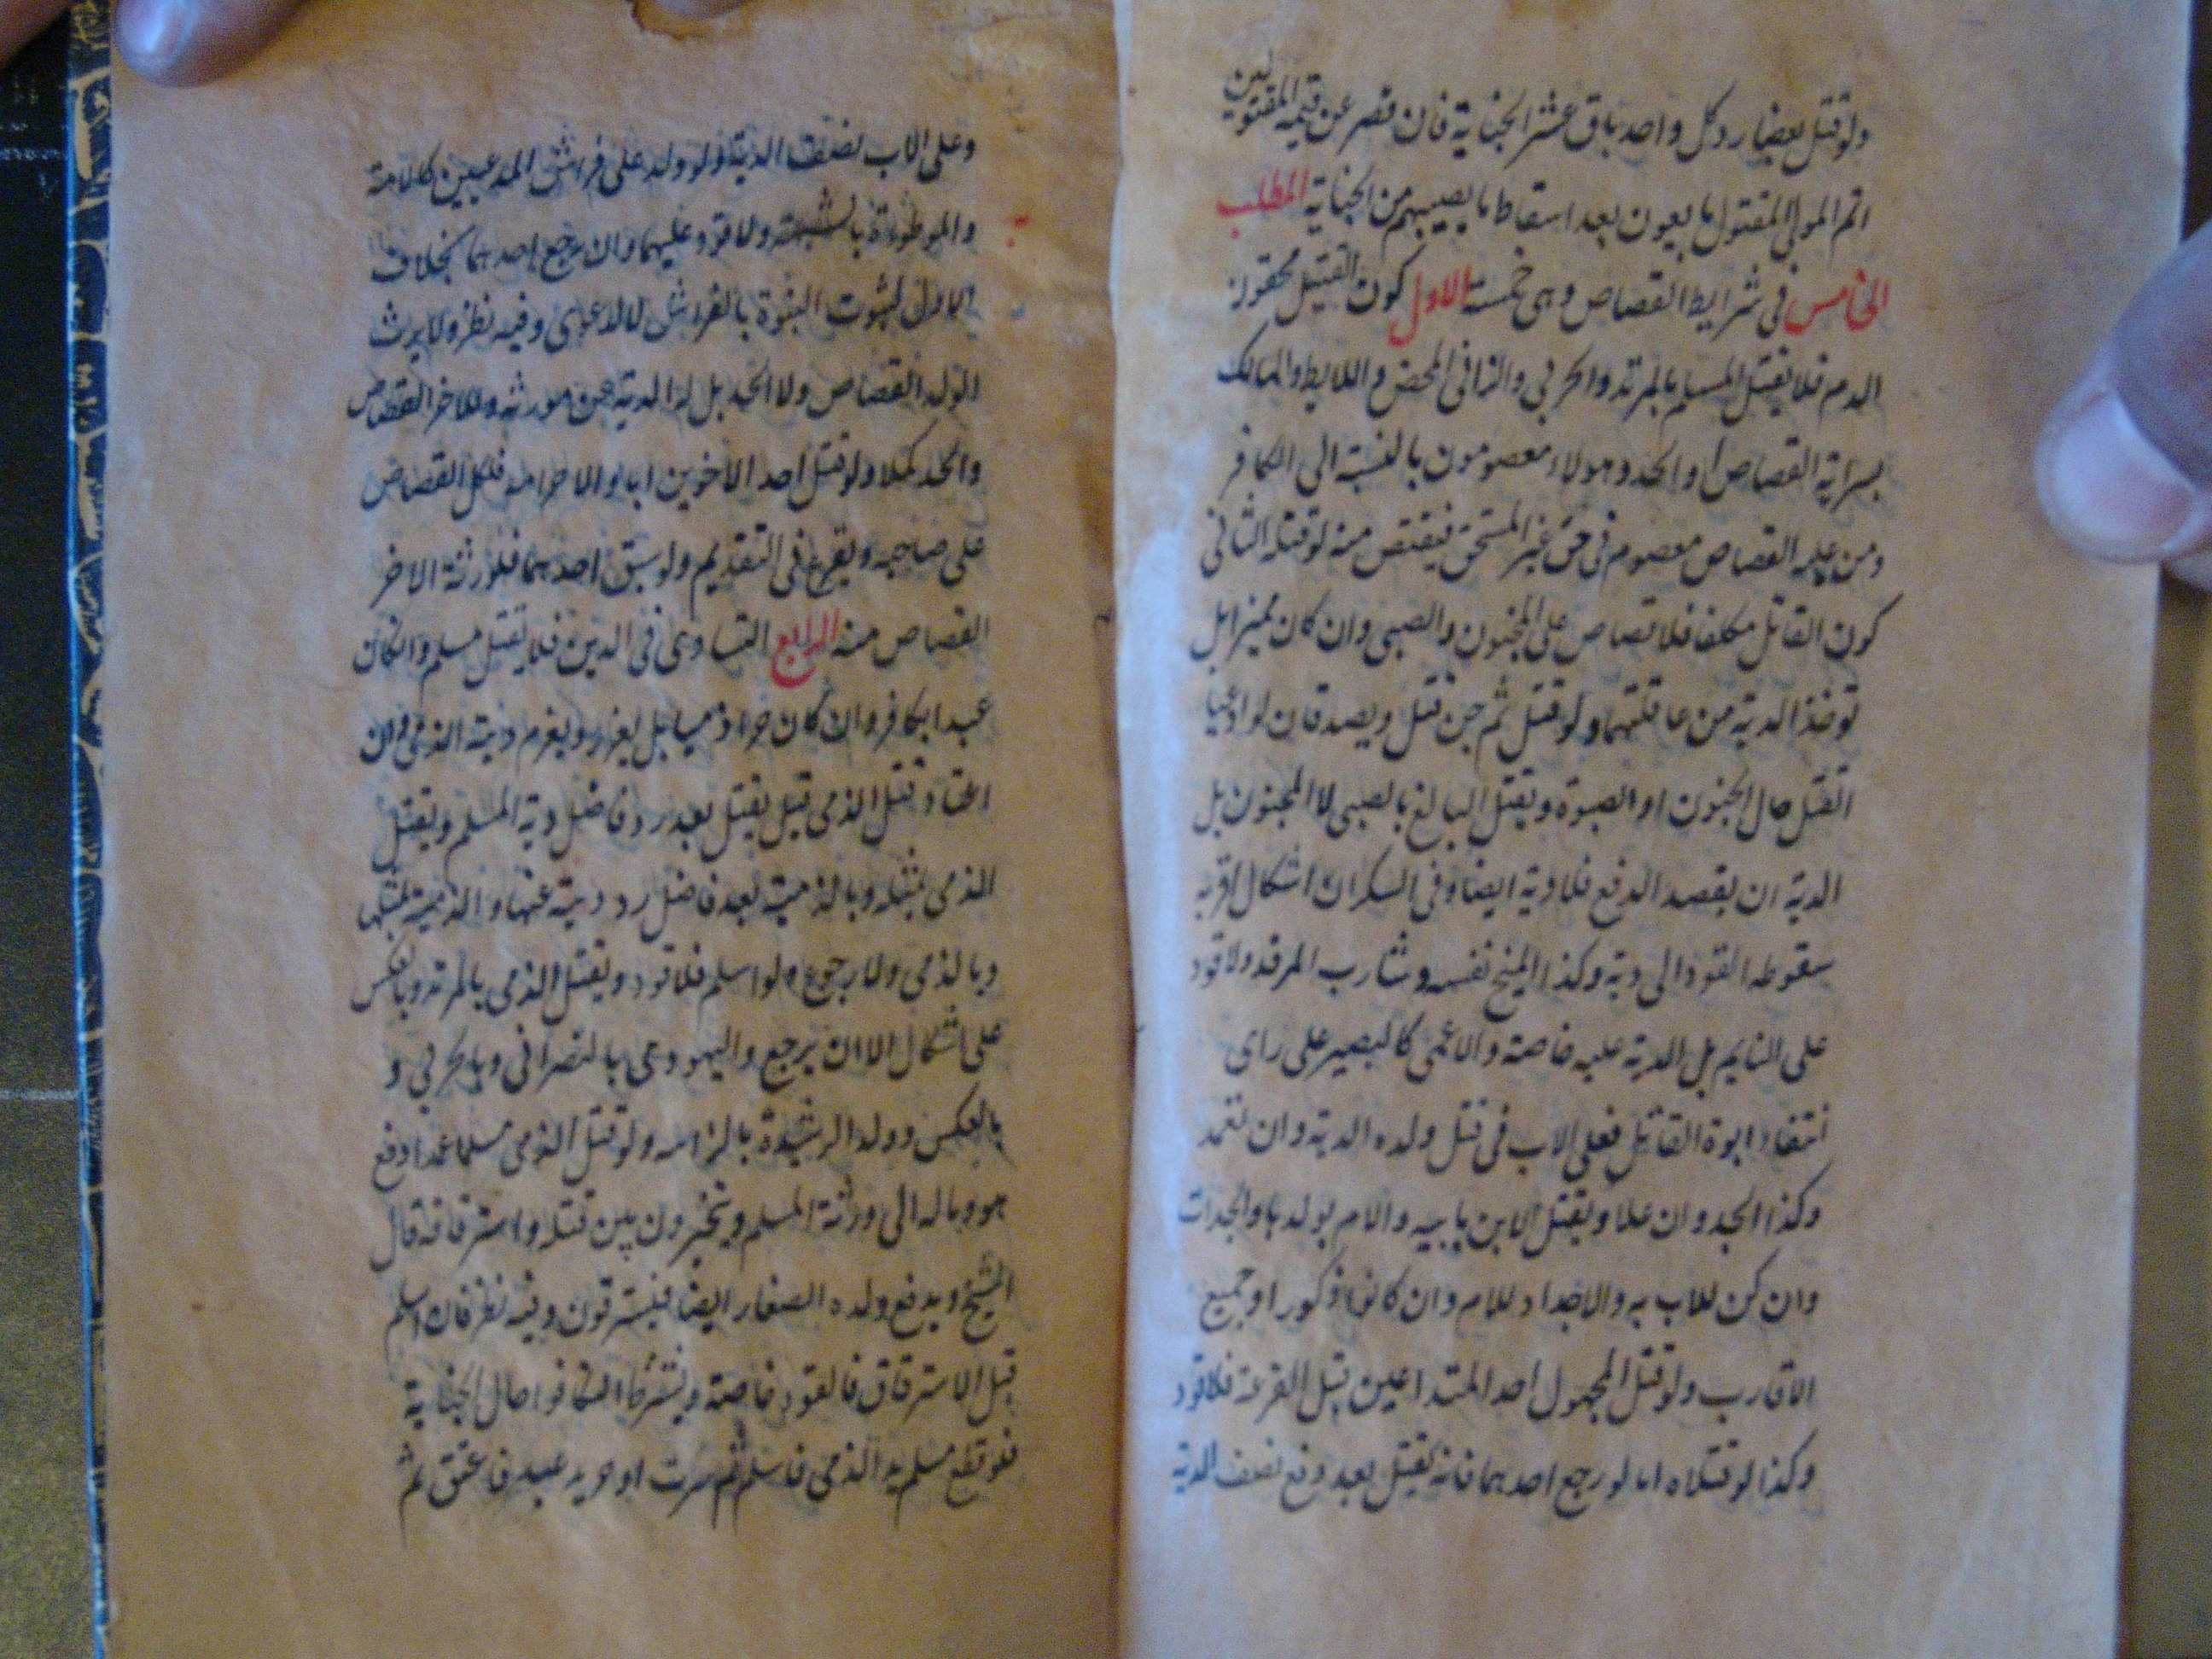 ولو قتل بعضا رد كل واحد باق عشر الجناية فان قصر عن قيمة المقتولين
اتم المولى المقتول ما يعون بعد اسقاط ما يصيبهم من الجناية المطلب
الخامس في شرايط القصاص وهي خمسة الاول كون القتيل محقون
الدم فلا يقتل المسلم بالمرتد والحربي والزاني المحصن واللايط والهالك
بسراية القصاص او الحد وهولاء معصومون بالنسبة الى الكافر
ومن عليه القصاص معصوم في حق غير المستحق فيقتص منه لو قتله الثاني
كون القاتل مكلفا فلا قصاص على المجنون والصبي وان كان مميزا بل
توخذ الدية من عاقلتهما ولو قتل ثم جن قتل ويصدقان لو ادعيا
القتل حال الجنون او الصبوة ويقتل البالغ بالصبي لا المجنون بل
الدية ان يقصد الدفع فلا دية ايضا وفي السكران اشكال اقربه
سقوط القود الى دية وكذا المبنج نفسه وشارب المرقد ولا قود
على النايم بل الدية عليه خاصة والاعمى كالبصير على راى
انتفاء ابوة القاتل فعلى الاب في قتل ولده الدية وان تعمد
وكذا الجد وان علا ويقتل الابن بابيه والام بولدها والجدات
وان كن للاب به والاجداد للام وان كانوا ذكورا وجميع
الاقارب ولو قتل المجهول احد المتداعيين قبل القرعة فلا قود
وكذا لو قتلاه اما لو رجع احدهما فانه يقتل بعد دفع نصف الدية
وعلى الاب نصف الدية ولو ولد على فراش المدعيين كالامة
والموطوءة بالشبهة ولا قود عليهما وان رجع احدهما بخلاف
الاول لثبوت البنوة بالفراش لا الدعوى وفيه نظر ولا يرث
الولد القصاص ولا الحد بل له الدية عن مورثه وللاخر القصاص
والحد كملا ولو قتل احد الاخوين اباه والاخر امه فلكل القصاص
على صاحبه ويقرع في التقديم ولو سبق احدهما فلورثة الاخر
القصاص منه الرابع التساوى في الدين فلا يقتل مسلم وان كان
عبدا بكافر وان كان حرا ذميا بل يعزر ويغرم دية الذمي وان
اعتاد قتل الذمي قيل يقتل بعد رد فاضل دية المسلم ويقتل
الذمي بمثله وبالذمية بعد فاضل رد ديته عنها والذمية بمثلها
وبالذمي ولا رجوع ولو اسلم فلا قود ويقتل الذمي بالمرتد وبالعكس
على اشكال الا ان يرجع واليهودى بالنصراني وبالحربي و
بالعكس وولد الرشيدة بالزانية ولو قتل الذمي مسلما عمدا دفع
هو وماله الى ورثة المسلم ويتخيرون بين قتله واسترقاقه قال
الشيخ ويدفع ولده الصغار ايضا فيسترقون وفيه نظر فان اسلم
قبل الاسترقاق فالقود خاصة ويشترط التكافو حال الجناية
فلو قطع مسلم يد الذمي فاسلم ثم سرت او حر يد عبد فاعتق ثم